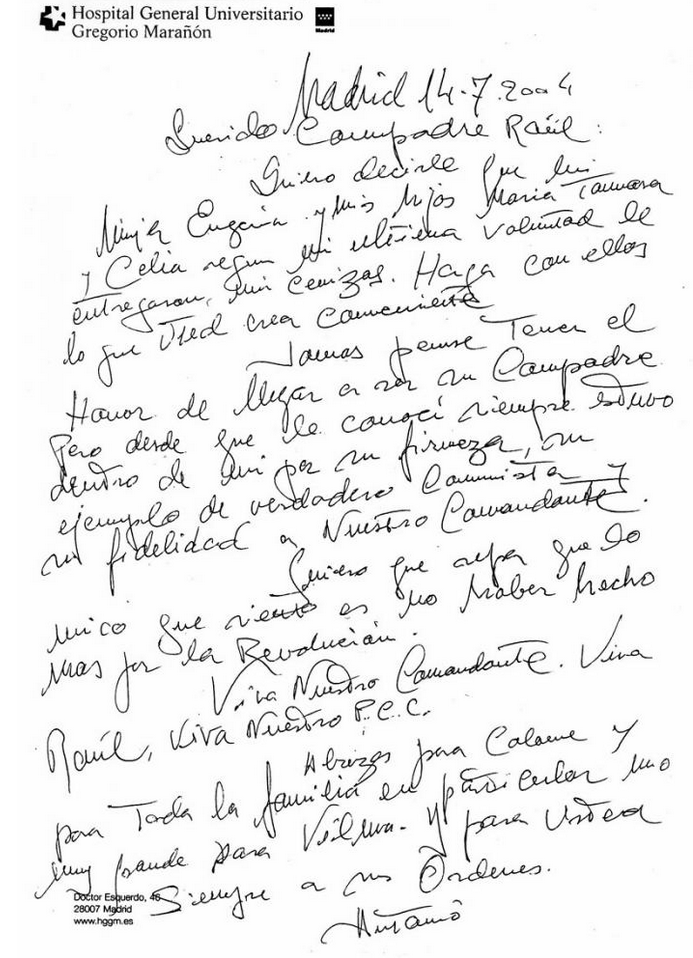 Hospital General Universitario
Gregorio Marañón
Madrid
Madrid 14-7-2004
Querido Compadre Raúl:
Quiero decirle que mi
Mujer Eugenia y mis hijas Maria Tamara
y Celia segun mi ultima voluntad le
entregaran, mis cenizas. Haga con ellas
lo que Usted crea conveniente
Jamas pense Tener el
Honor de llegar a ser su Compadre
Pero desde que le conocí siempre estuvo
dentro de mi por su firmeza, su
ejemplo de verdadero Comunista y
su fidelidad a Nuestro Comandante.
Quiero que sepa que lo
unico que siento es no haber hecho
mas por la Revolución.
Viva Nuestro Comandante. Viva
Raúl, Viva Nuestro P.C.C.
Abrazos para Colome y
para Toda la familia en particular uno
muy grande para Vilma. Y para Usted
Siempre a sus Ordenes.
Antonio
Doctor Esquerdo, 46
28007 Madrid
www.hggm.es